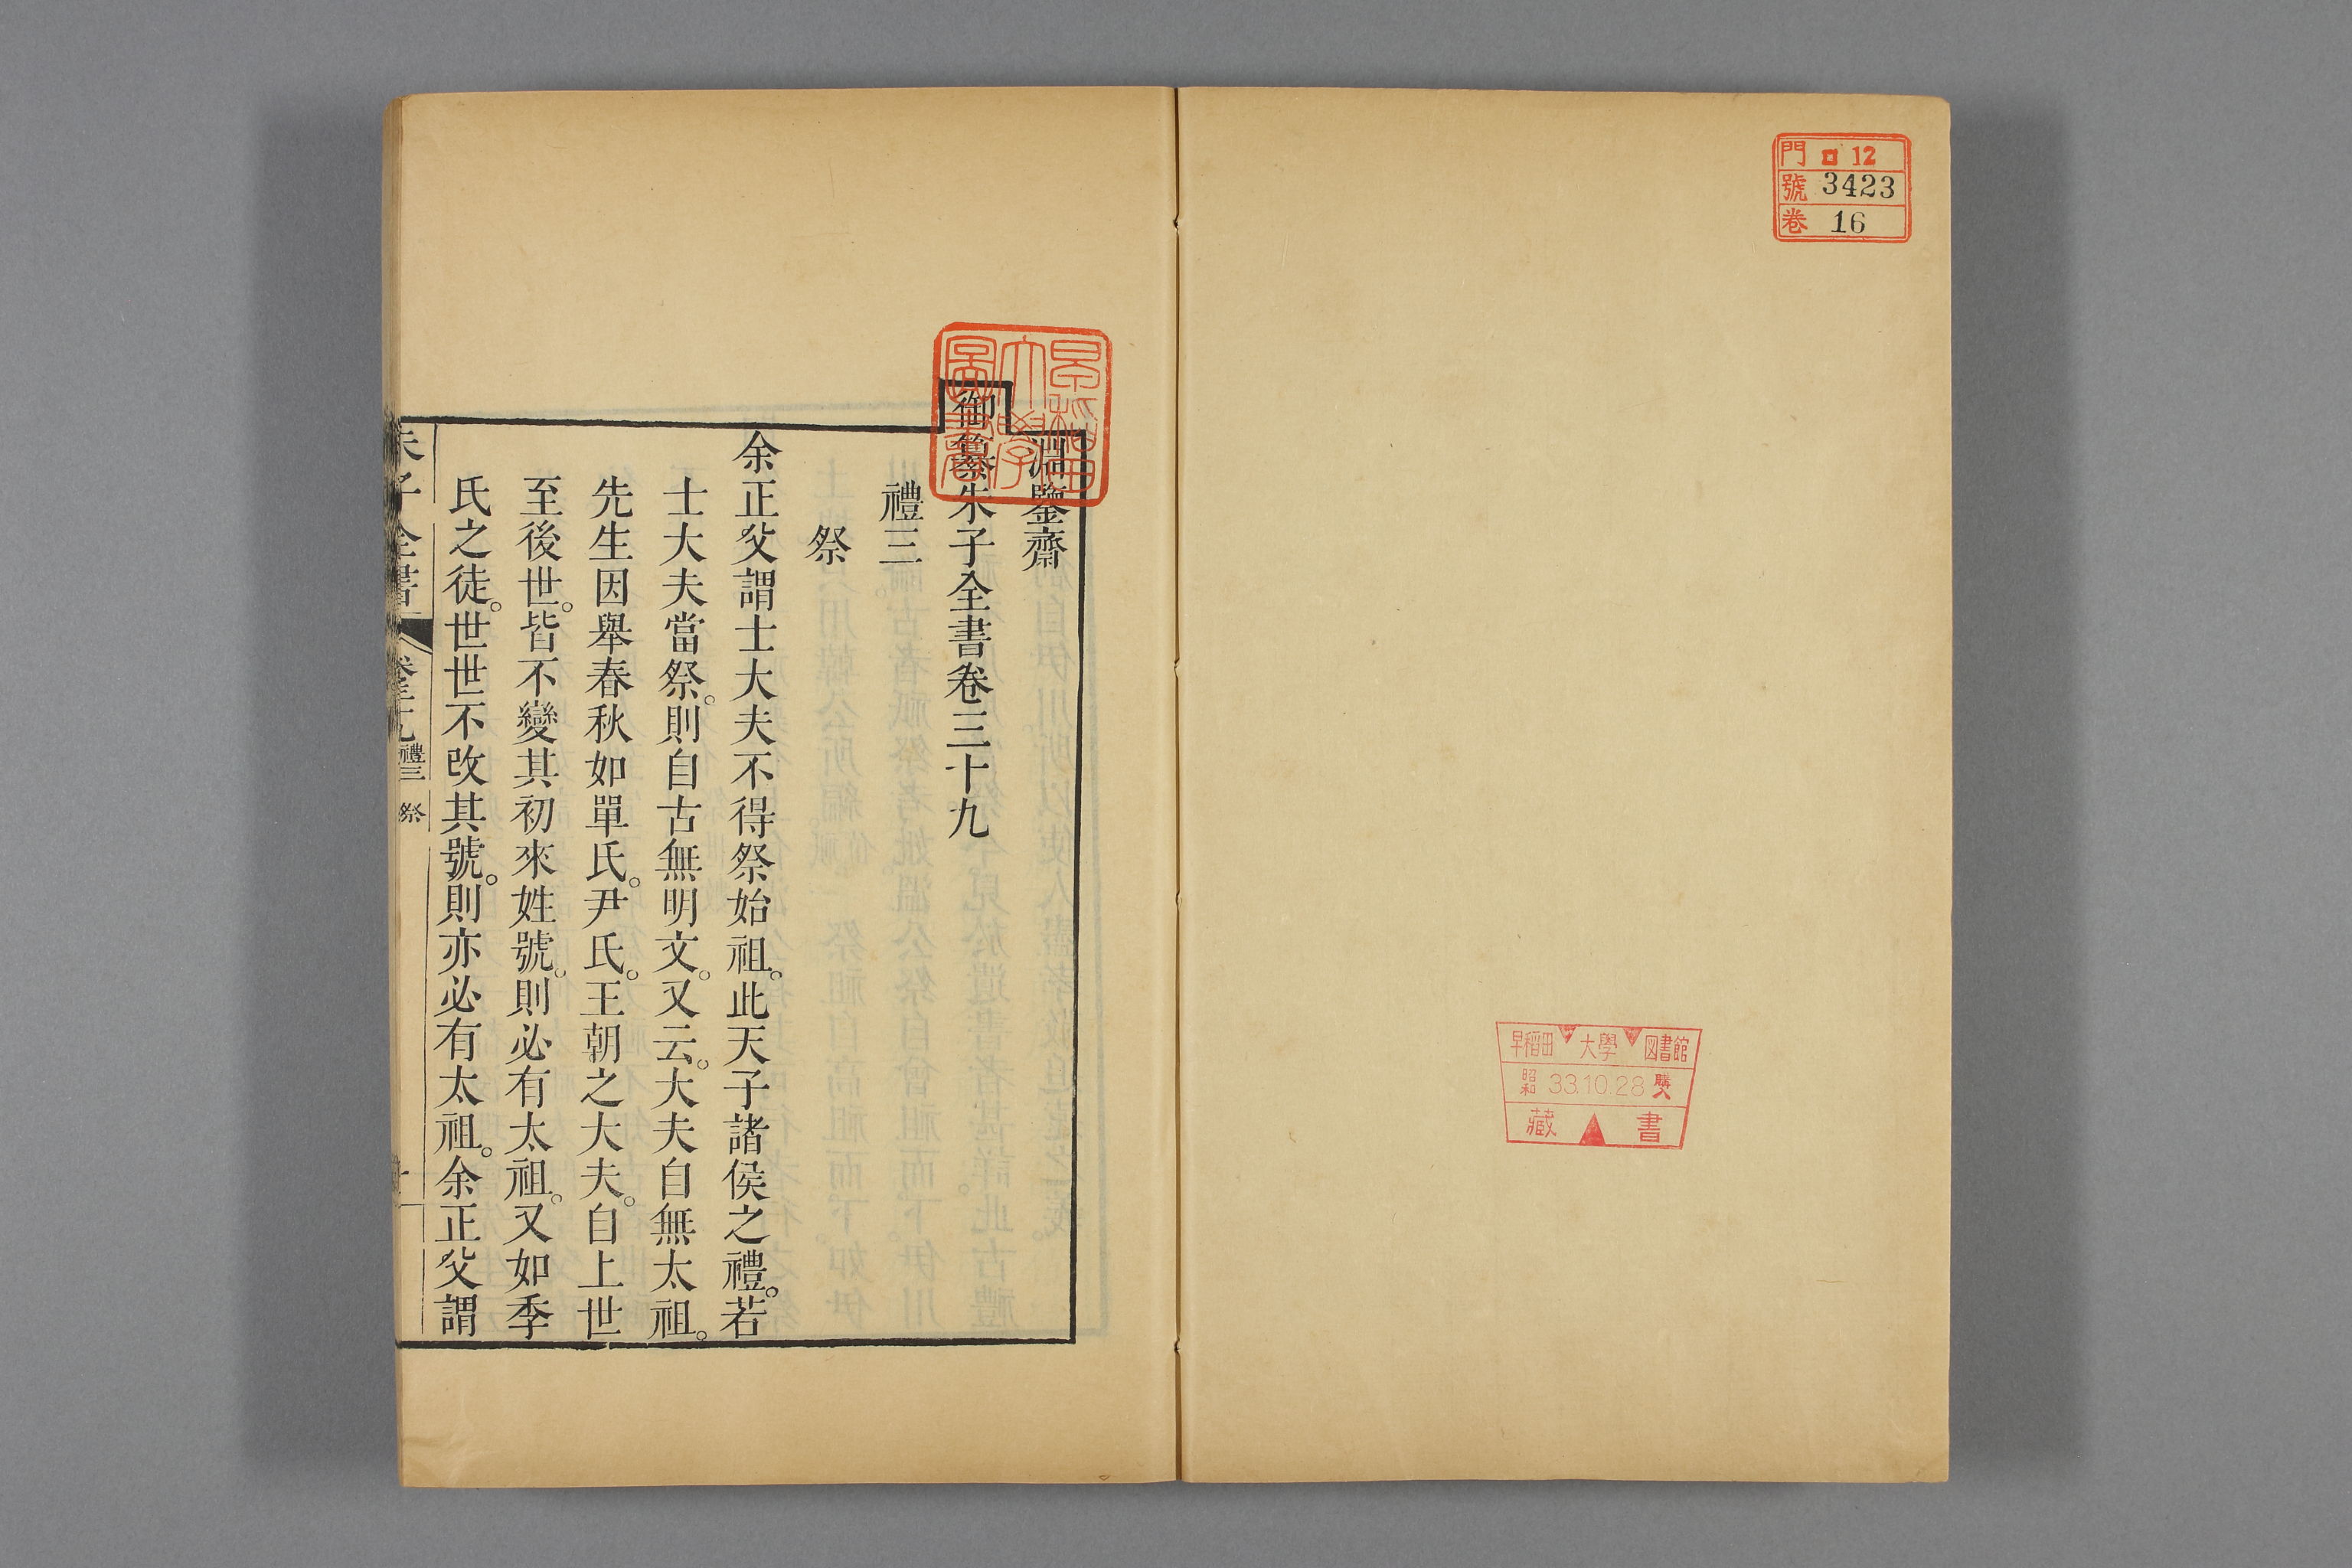 門 ロ 12
號 3423
卷 16
早稲田大學図書館
昭和 33.10.28 購
藏書
早稲田大學圖書
淵鑒齋
御纂朱子全書卷三十九
禮三
祭
余正父謂士大夫不得祭始祖。此天子諸侯之禮。若
士大夫當祭。則自古無明文。又云。大夫自無太祖。
先生因舉春秋如單氏。尹氏。王朝之大夫。自上世
至後世。皆不變其初來姓號。則必有太祖。又如季
氏之徒。世世不改其號。則亦必有太祖。余正父謂
朱子全書 卷三十九 禮三 祭